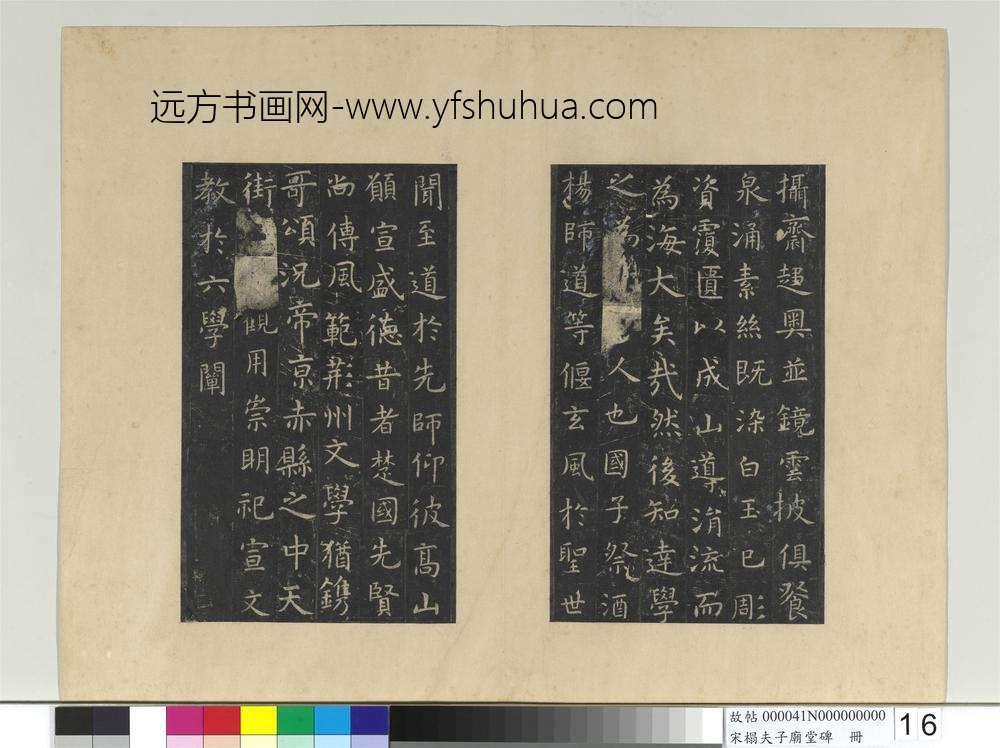 远方书画网-www.yfshuhua.com
攝齋趍奥並鏡雲披俱餐
泉涌素絲既染白玉已彫
資覆匱以成山導涓流而
為海大矣㢤然後知達學
之為人也國子祭酒
楊師道等偃玄風於聖世
聞至道於先師仰彼髙山
願宣盛德昔者楚國先賢
尚傳風範荊州文學猶鐫
哥頌況帝京赤縣之中天
街觀用崇明祀宣文
教於六學闡
故帖 000041N000000000
宋榻夫子廟堂碑 冊
16